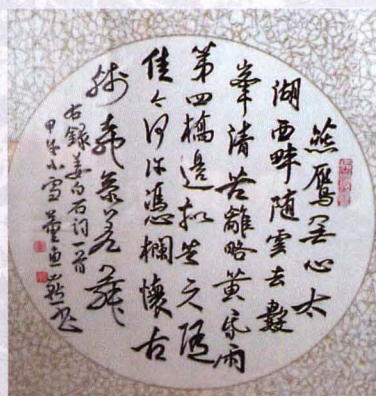 燕雁无心太
湖西畔隨雲去數
峯清苦離略黃昏雨
第四橋邊擬共天隨
佳今何許憑欄懷古
殘柳參差舞
右錄姜白石詞一首
甲午小雪董